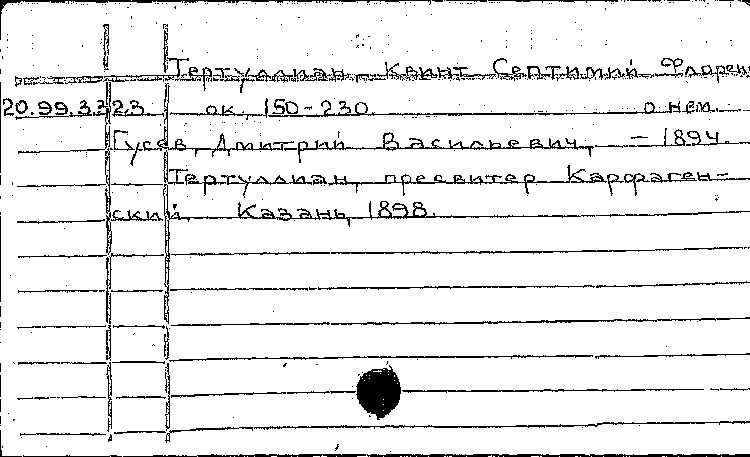 Тертуллиан, Квинт Септимий Флорен
20.99.3.323 ок. 150-230. о нем.
Гусев, Дмитрий Васильевич, - 1894.
Тертуллиан, пресвитер Карфаген-
ский. Казань, 1898.